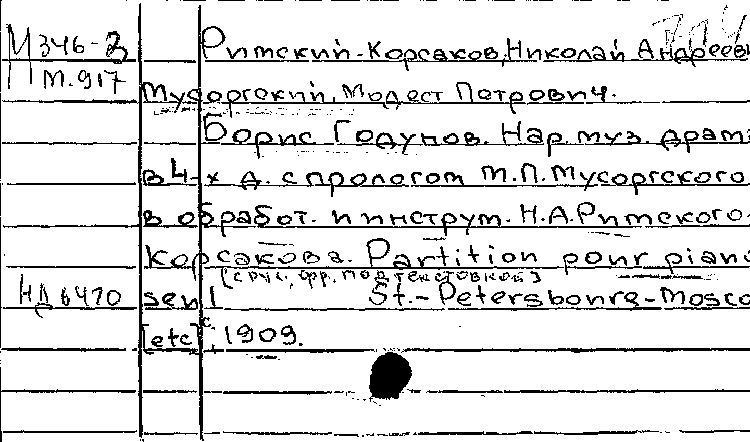 М 346-3 Римский-Корсаков, Николай Андрееви
М.917 Мусоргский, Модест Петрович.
Борис Годунов. Нар. муз. драм
в 4-х д. с прологом М.П. Мусоргского
в обработ. и инструм. Н.А. Римского-
Корсакова. Partition pour piano
[с рус., фр. подтекстовкой]
НД 6470 seul St.-Petersbourg-Mosco
[etc], 1909.